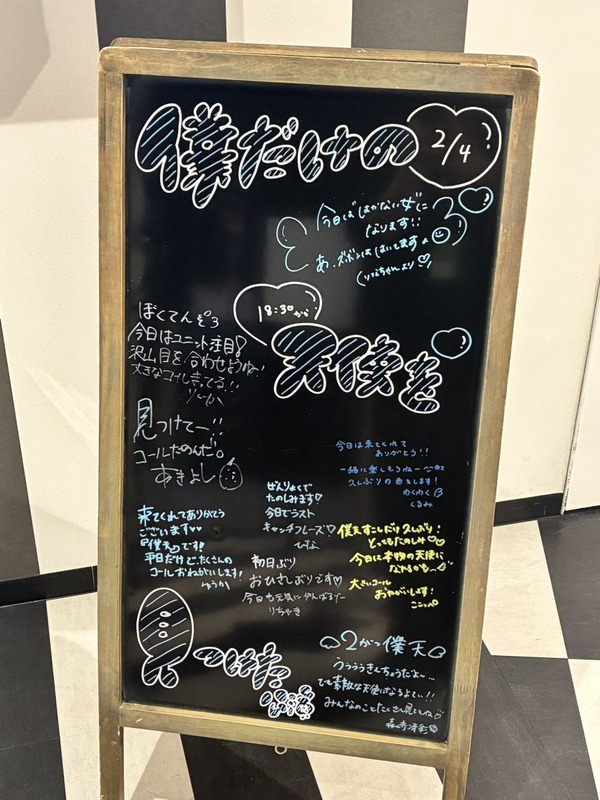 僕だけの
2/4
今日ははかない女に
なります!!
あ、ズボンははいてますよ
(りなちゃんより♡
18:30から
天使を
ぼくてんぞ3
今日はユニット注目!
沢山目を合わせようね~!
大きなコール待ってる!!
見つけてー!!
コールたのんだ。
あきよし
今日は来てくれて
ありがとう!!
一緒に楽しもうねー
久しぶりの曲もします!
わくわく
くるみ
ぜんりょくで
たのしみます♡
今日でラスト
キャッチフレーズ♡
ひな
僕天すこしだけ久しぶり!
とってもたのしみ♡♡
今日こそ本物の天使に
なれるかも...
大きいコール
おねがいします!
来てくれてありがとう
ございます♡♡
『僕天』です!
平日だけど、たくさんの
コールおねがいします!
ゆうか
初日ぶり
おひさしぶりです♡
今日も元気にがんばるぞー
りちゃき
見つけた
2がつ僕天
うううきんちょうだよ~...
でも素敵な天使になるよて!!
みんなのことたくさん見つけるね